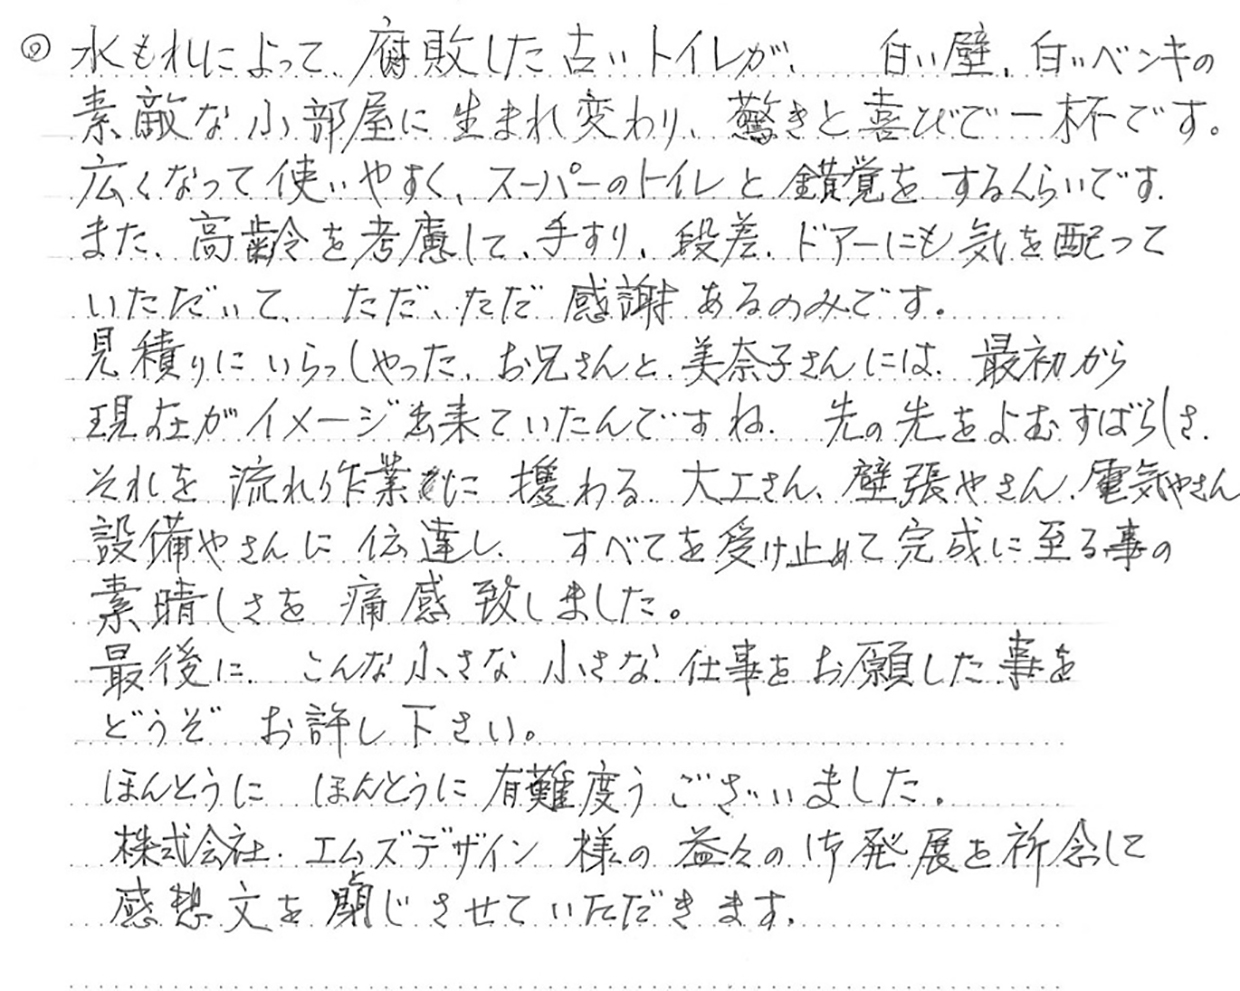 ② 水もれによって、腐敗した古いトイレが、 白い壁、白いベンキの
素敵な小部屋に生まれ変わり、驚きと喜びで一杯です。
広くなって使いやすく、スーパーのトイレと錯覚をするくらいです。
また、高齢令を考慮して、手すり、段差、ドアーにも気を配って
いただいて、ただ、ただ感謝あるのみです。
見積りにいらっしゃった、お兄さんと、美奈子さんには、最初から
現在がイメージ出来ていたんですね。先の先をよむすばらしさ、
それを流れ作業に携わる、大工さん、壁張やさん、電気やさん
設備やさんに伝達し、すべてを受け止めて完成に至る事の
素晴しさを痛感致しました。
最後に、こんな小さな小さな仕事をお願した事を
どうぞ お許し下さい。
ほんとうに ほんとうに有難度うございました。
株式会社、エムズデザイン様の益々の御発展を祈念して
感想文を閉じさせていただきます。